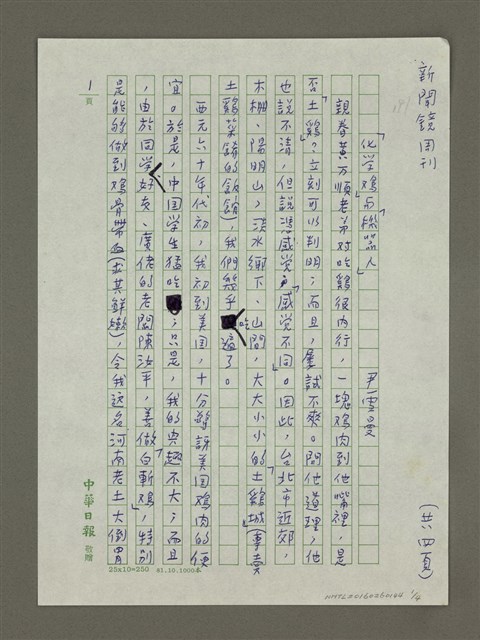 新聞鏡周刊
(共四頁)
「化学鷄」与「機器人」
尹雪曼
親眷黄万順老弟对吃鷄很内行，一塊鸡肉到他嘴裡，是
否「土鷄」？立刻可以判明；而且，屡試不爽。問他道理，他
也説不清，但説憑感覚：「感觉不同」。因此，台北市近郊，
木柵、陽明山，淡水鄉下、山間，大大小小的「土鷄城」(專賣
土鷄菜餚的飯館)，我們幾乎吃遍了。
西元六十年代初，我初到美国，十分驚訝美国鸡肉的便
宜。於是，中国学生猛吃；只是，我的興趣不大；而且
，由於同学好友、廣佬的老闆陳汝平，善做「白斬鸡」，特别
是能够做到鸡骨帶血(求其鮮嫩)，令我这名河南老土大倒胃
1
頁
中華日報
敬贈
25x10=250 81.10.1000本
NMTL20160260144 1/4